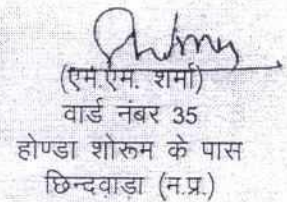 (एम.एम. शर्मा)
वार्ड नंबर 35
होण्डा शोरूम के पास
छिन्दवाड़ा (म.प्र.)